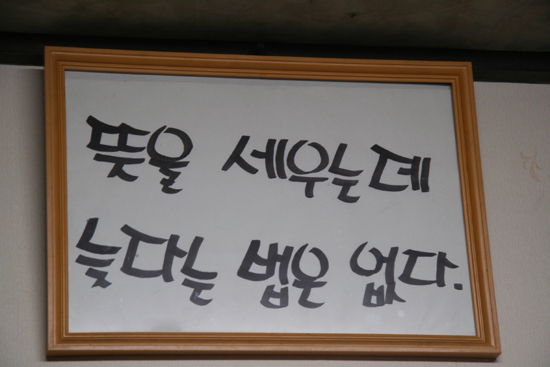 뜻을 세우는데
늦다는 법은 없다.